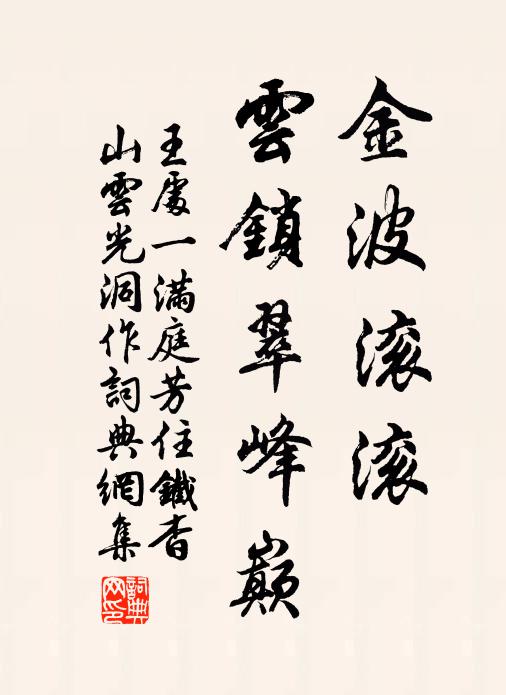 金波滚滚
雲鎖翠峰巅
王處一滿庭芳住鐵查
山雲光洞作詞典網集
詞典网印